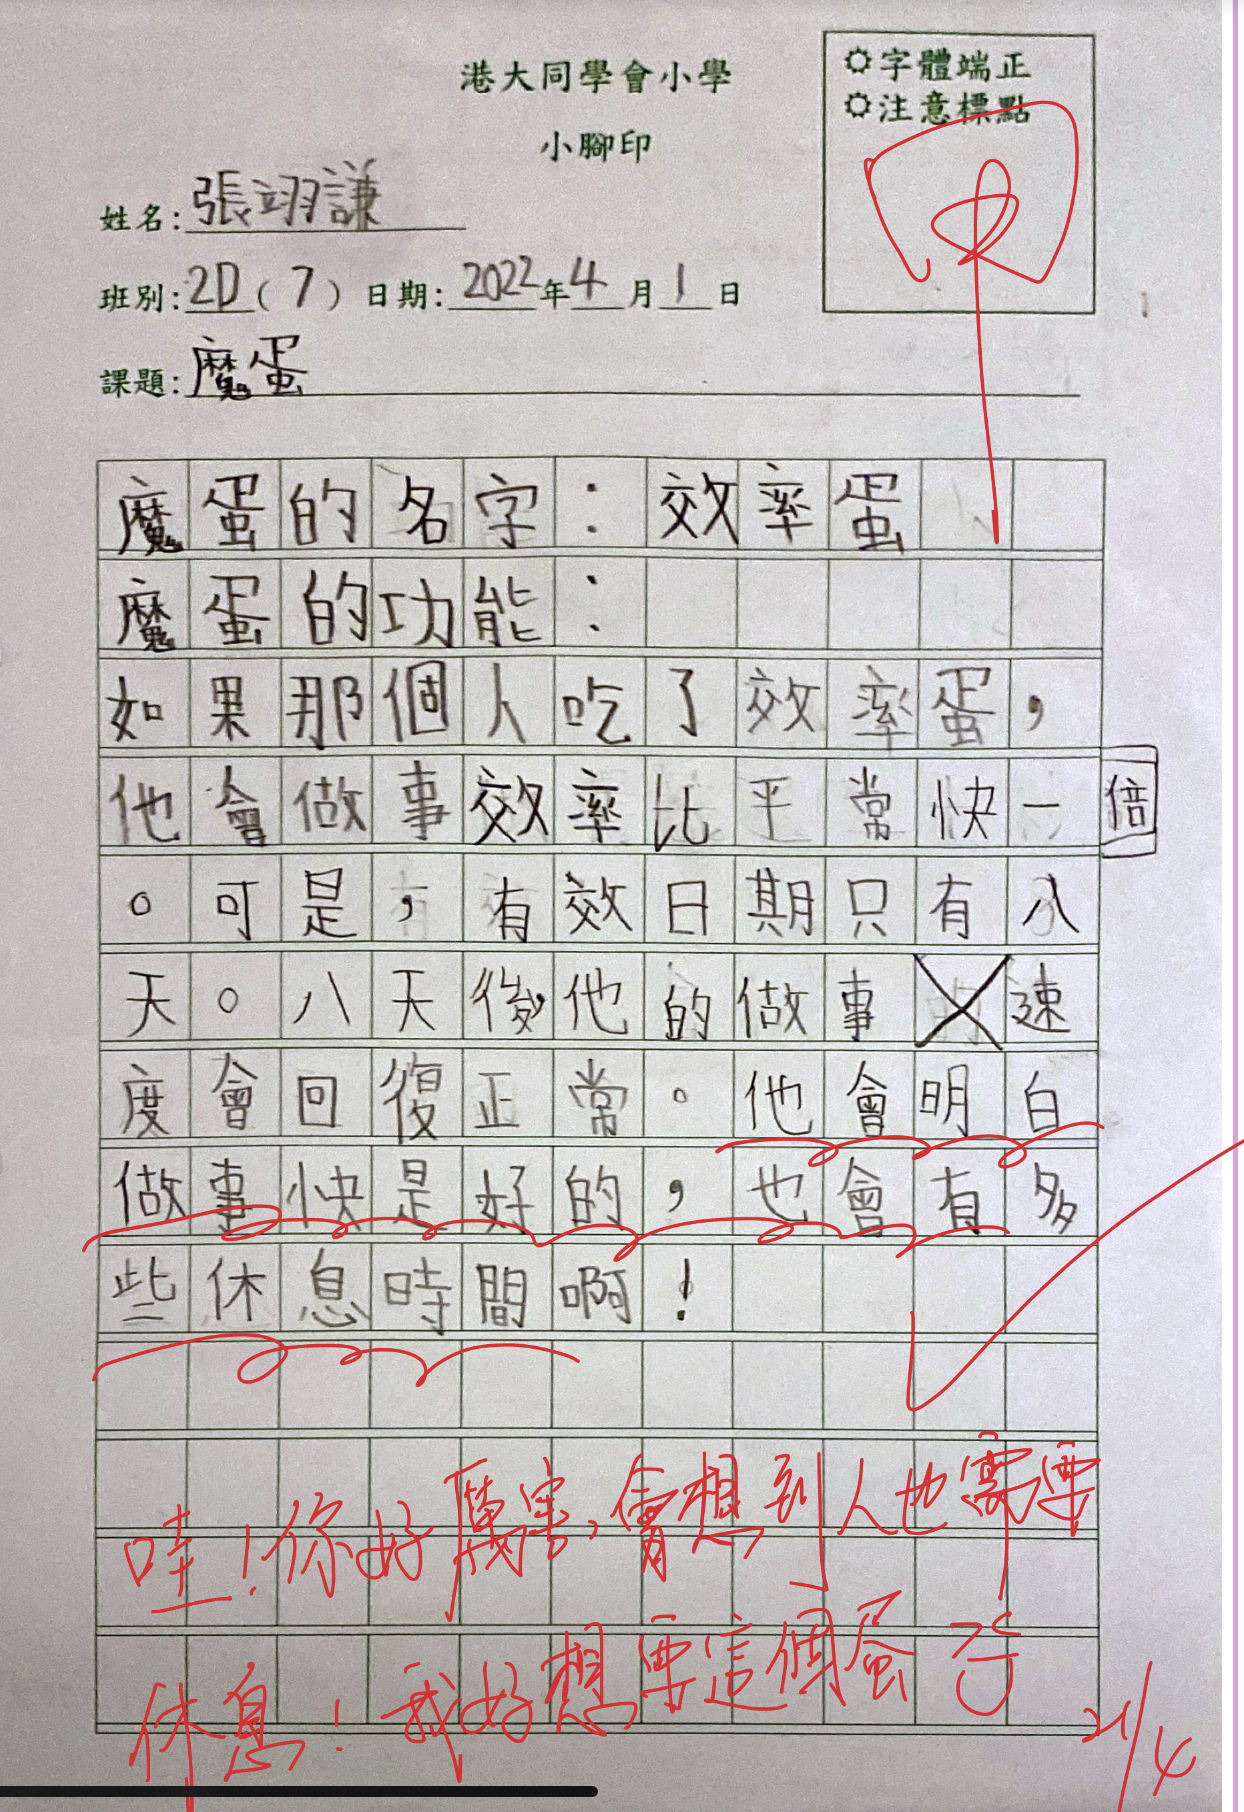 港大同學會小學
小腳印
字體端正
注意標點
姓名:張翊謙
班別:2D(7)日期:2022年4月1日
課題:魔蛋
魔蛋的名字：效率蛋
魔蛋的功能：
如果那個人吃了效率蛋，
他會做事效率比平常快一倍
。可是，有效日期只有八
天。八天後他的做事速
度會回復正常。他會明白
做事快是好的，也會有多
些休息時間啊！
哇！你好厲害，會想到人也需要
休息！我好想要這個蛋子
21/4